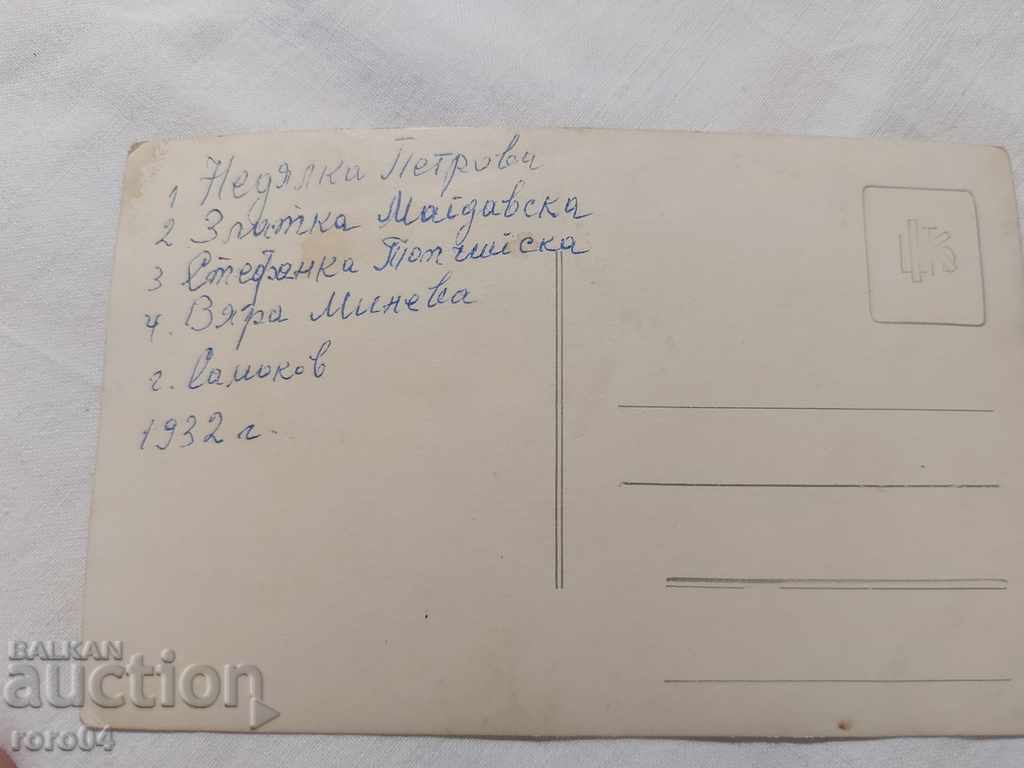 1 Недялка Петрова
2 Златка Майдавска
3 Стефанка Топчийска
4. Вяра Минева
г. Самоков
1932 г.
BALKAN
auction
roro04